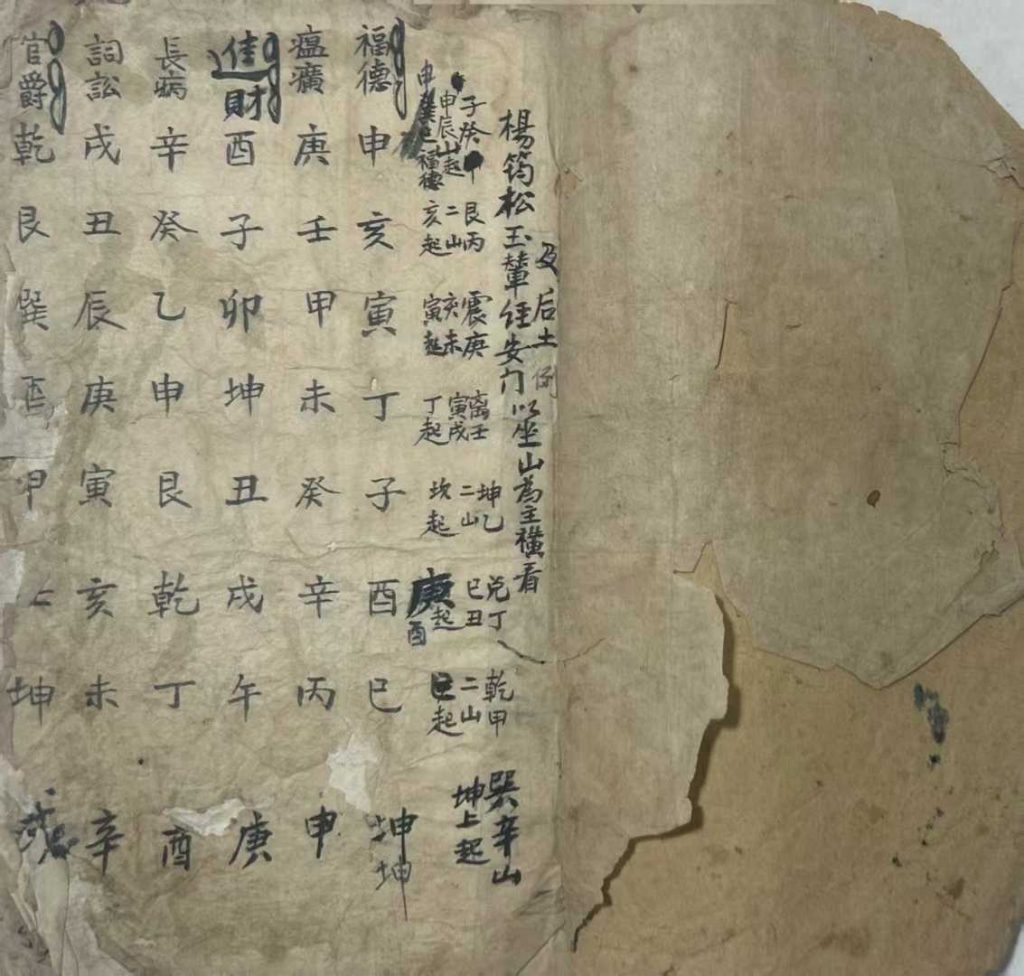 及后土例
楊筠松玉輦經安门以坐山為主橫看
子癸
申辰山起
申
福德
艮丙
二山
亥起
震庚
亥未
寅起
离壬
寅戌
丁起
坤乙
二山
坎起
兌丁
巳丑
庚起
酉
乾甲
二山
巳起
巽辛山
坤上起
福德申亥寅丁子酉巳坤坤
瘟癀庚壬甲未癸辛丙申
進財酉子卯坤丑戌午庚
長病辛癸乙申艮乾丁酉
詞訟戌丑辰庚寅亥未辛
官爵乾艮巽酉甲坤